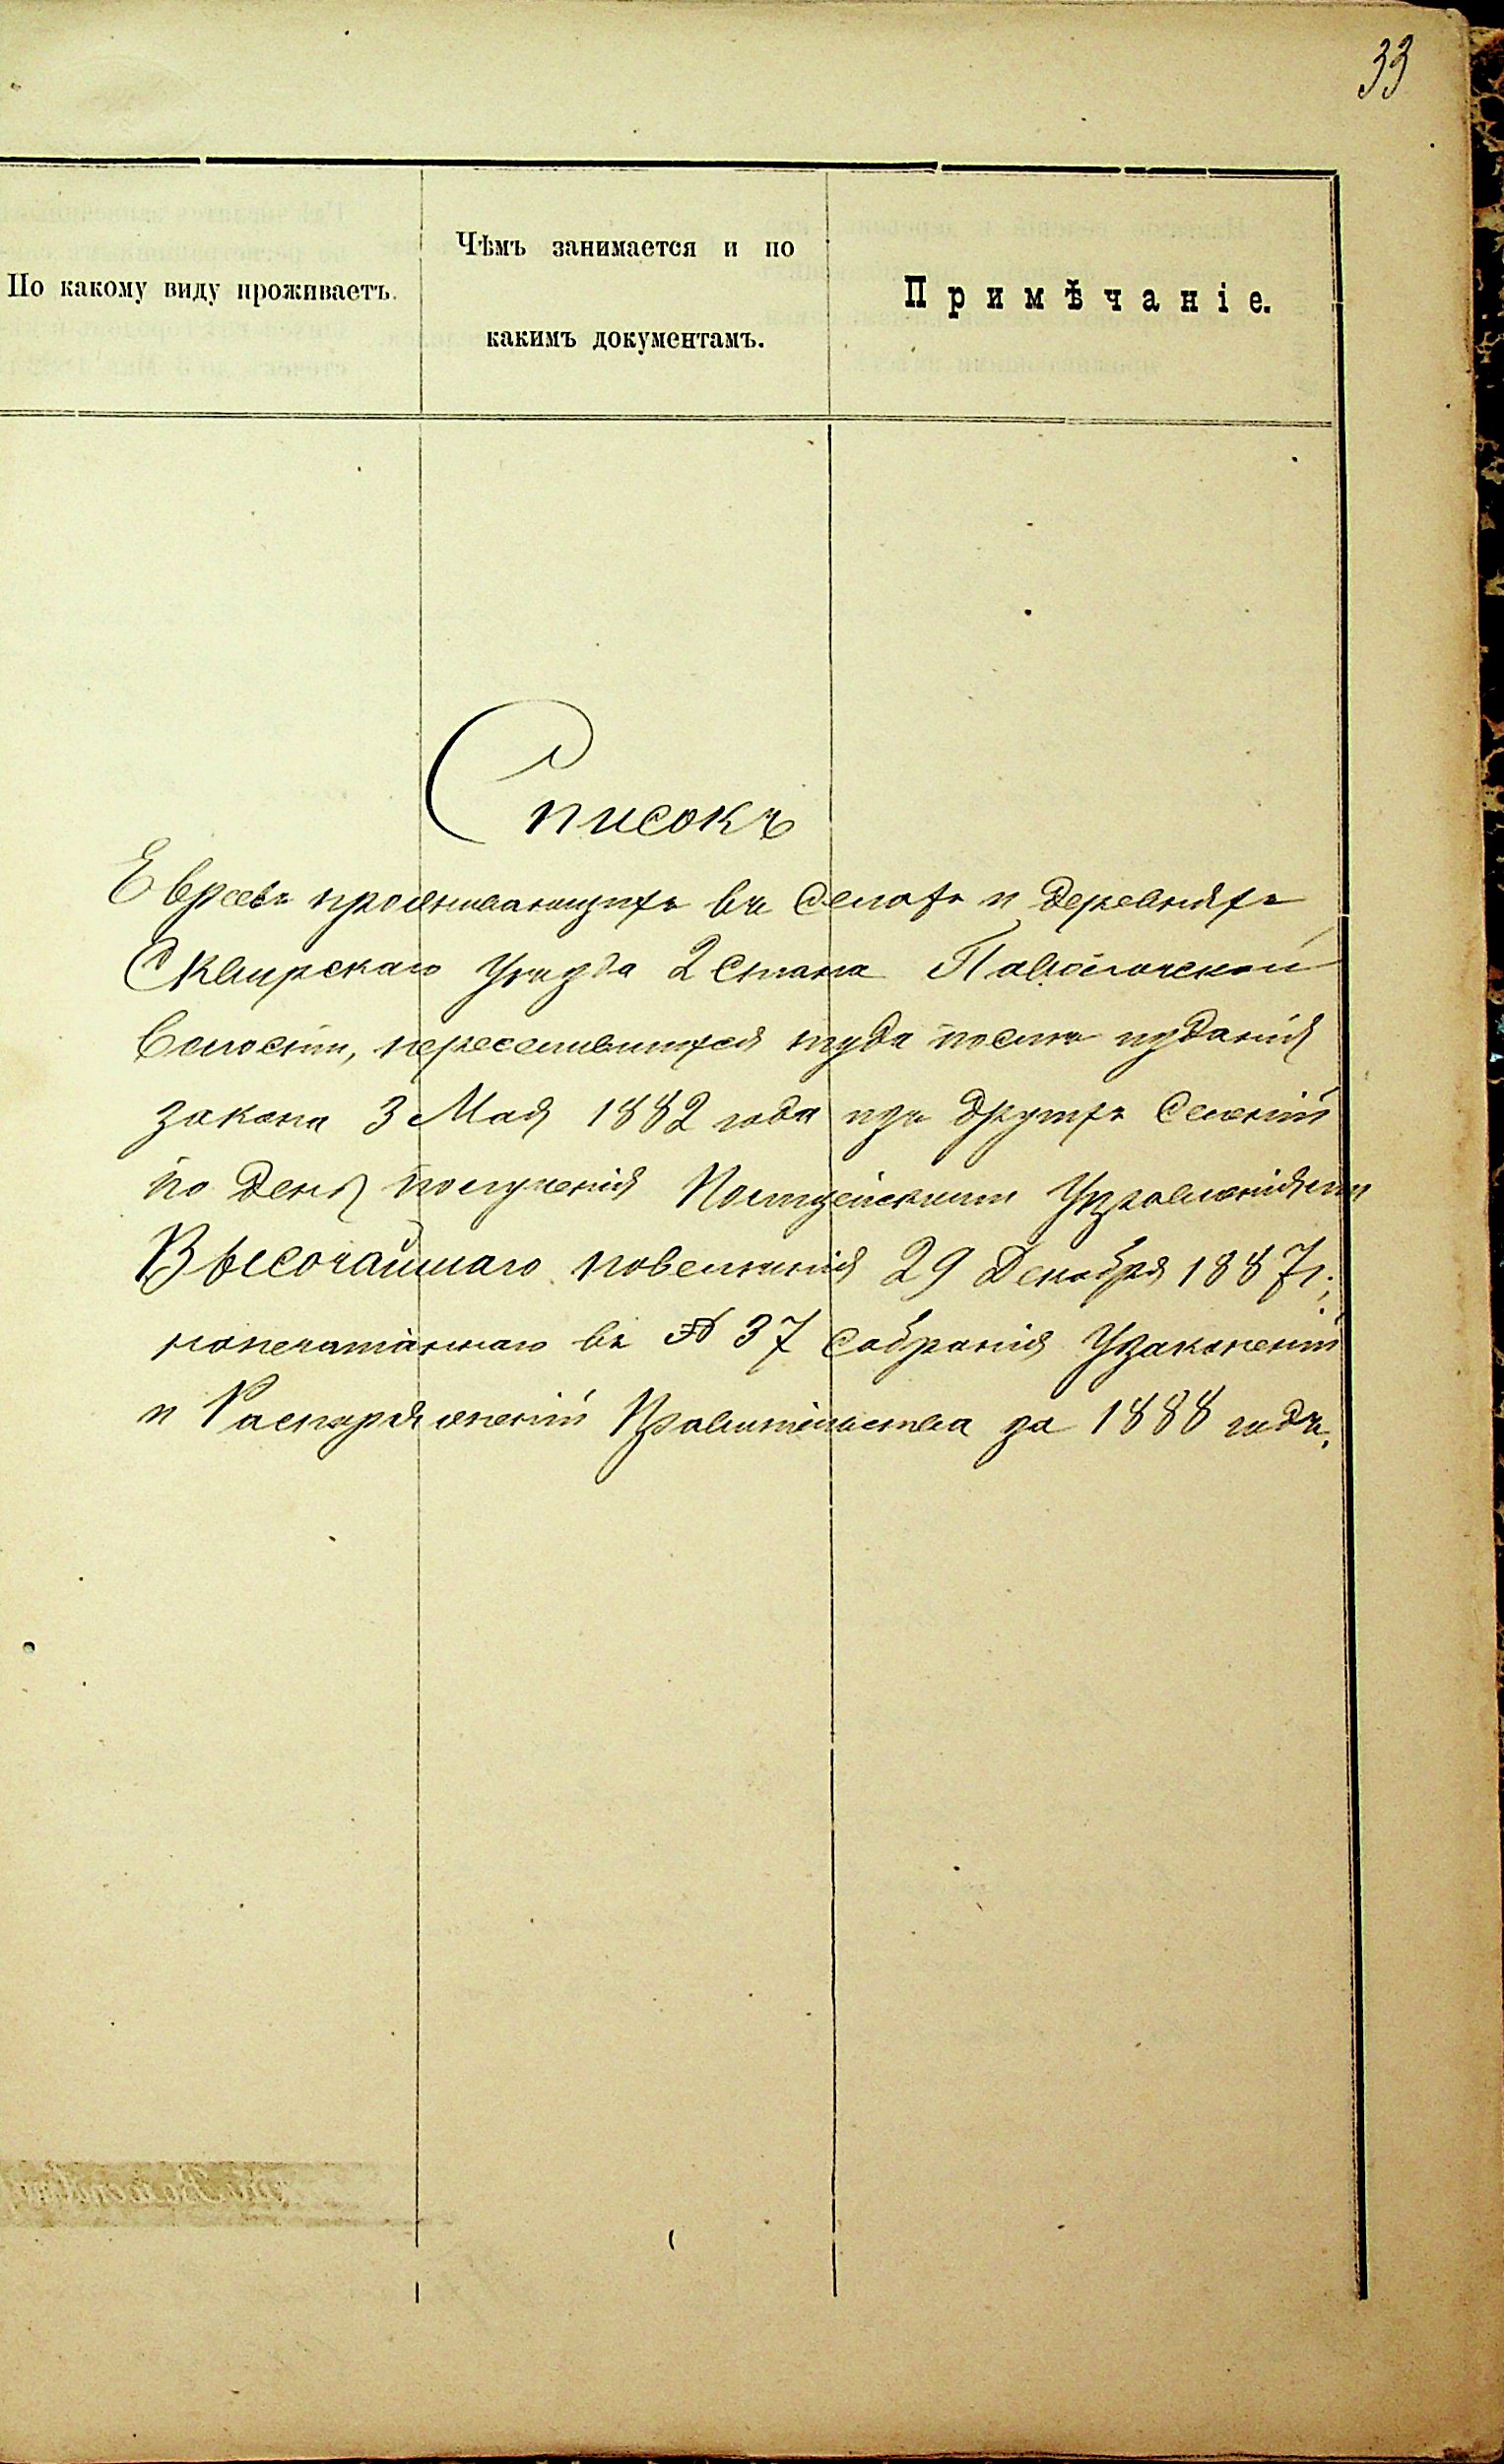 33
По какому виду проживаетъ.
Чѣмъ занимается и по
какимъ документамъ.
Примѣчаніе.
Списокъ
Евреевъ проживающихъ въ селахъ и деревняхъ
Сквирскаго уѣзда 2 стана Паволочской
волости, переселившихся туда послѣ изданія
закона 3 Мая 1882 года изъ другихъ селеній
по день полученія Полицейскими Управленіями
Высочайшаго повелѣнія 29 Декабря 1887 г.,
напечатаннаго въ № 37 собранія Узаконеній
и Распоряженій Правительства за 1888 годъ.